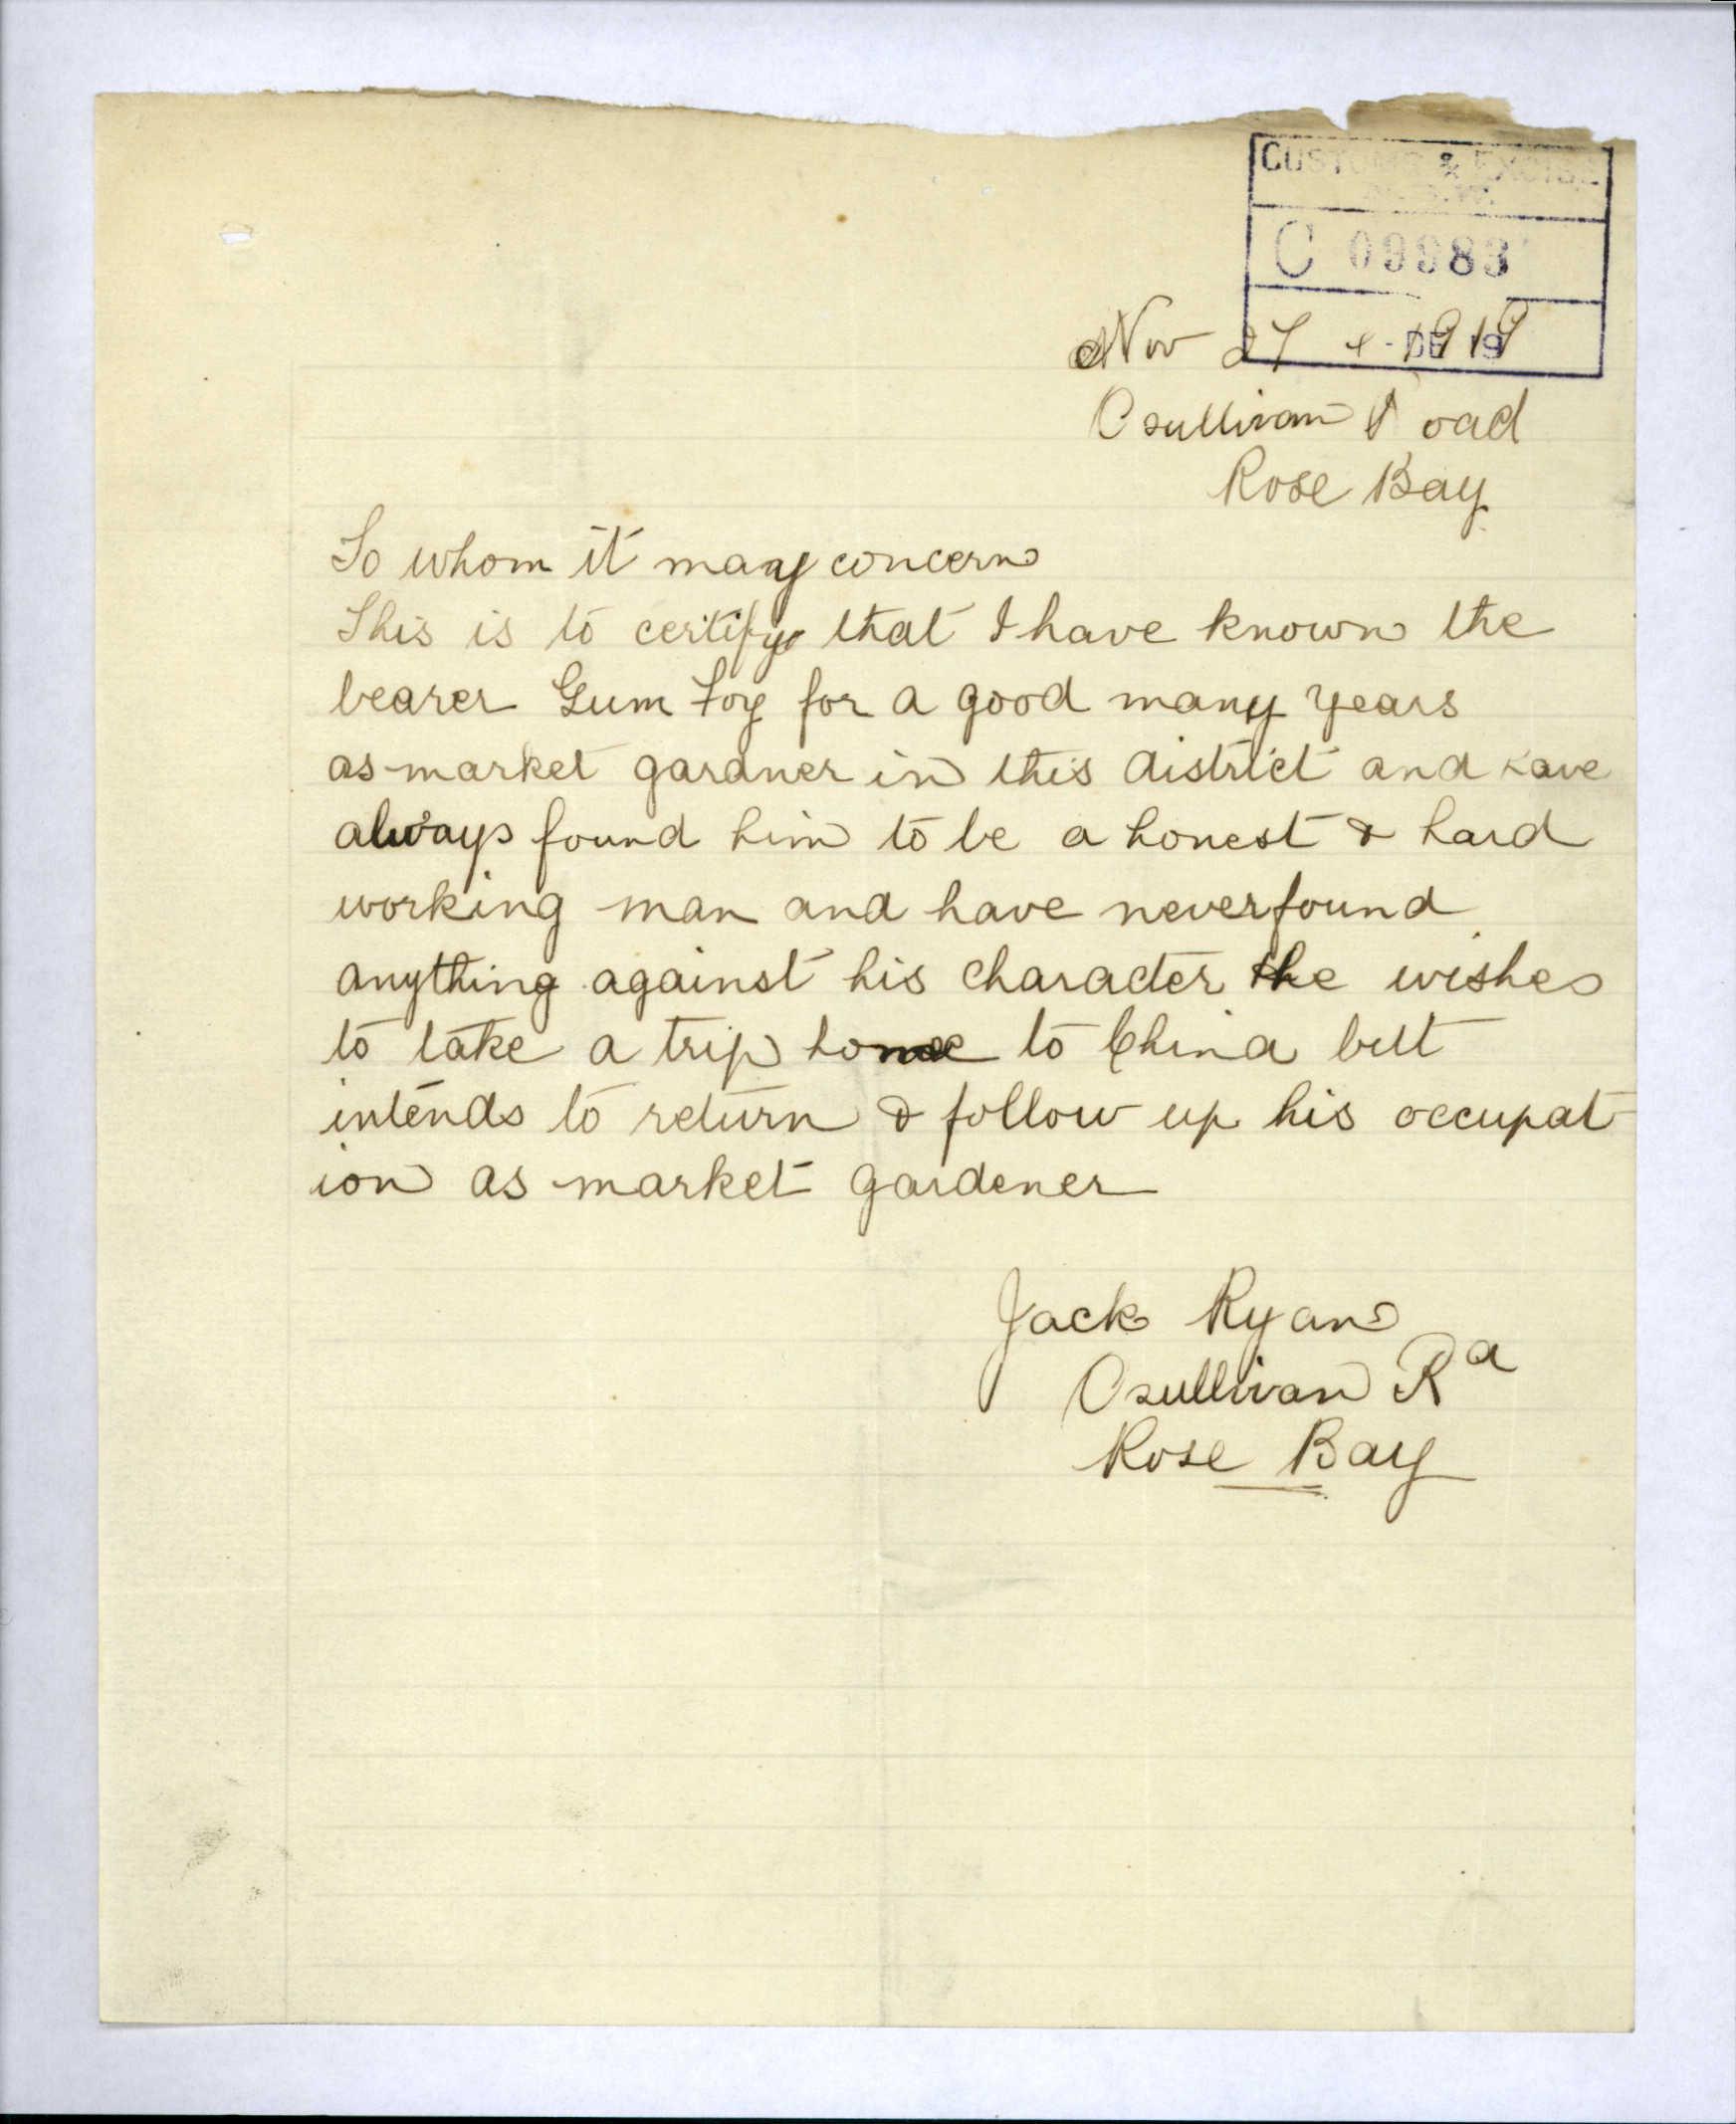 CUSTOMS & EXCISE
N.S.W.
C 09983
Nov 27 1919
Osullivan Road
Rose Bay
To whom it may concern
This is to certify that I have known the
bearer Gum Foy for a good many years
as market gardner in this district and have
always found him to be a honest & hard
working man and have never found
anything against his character he wishes
to take a trip home to China but
intends to return & follow up his occupat
ion as market gardener
Jack Ryan
Osullivan Rd
Rose Bay